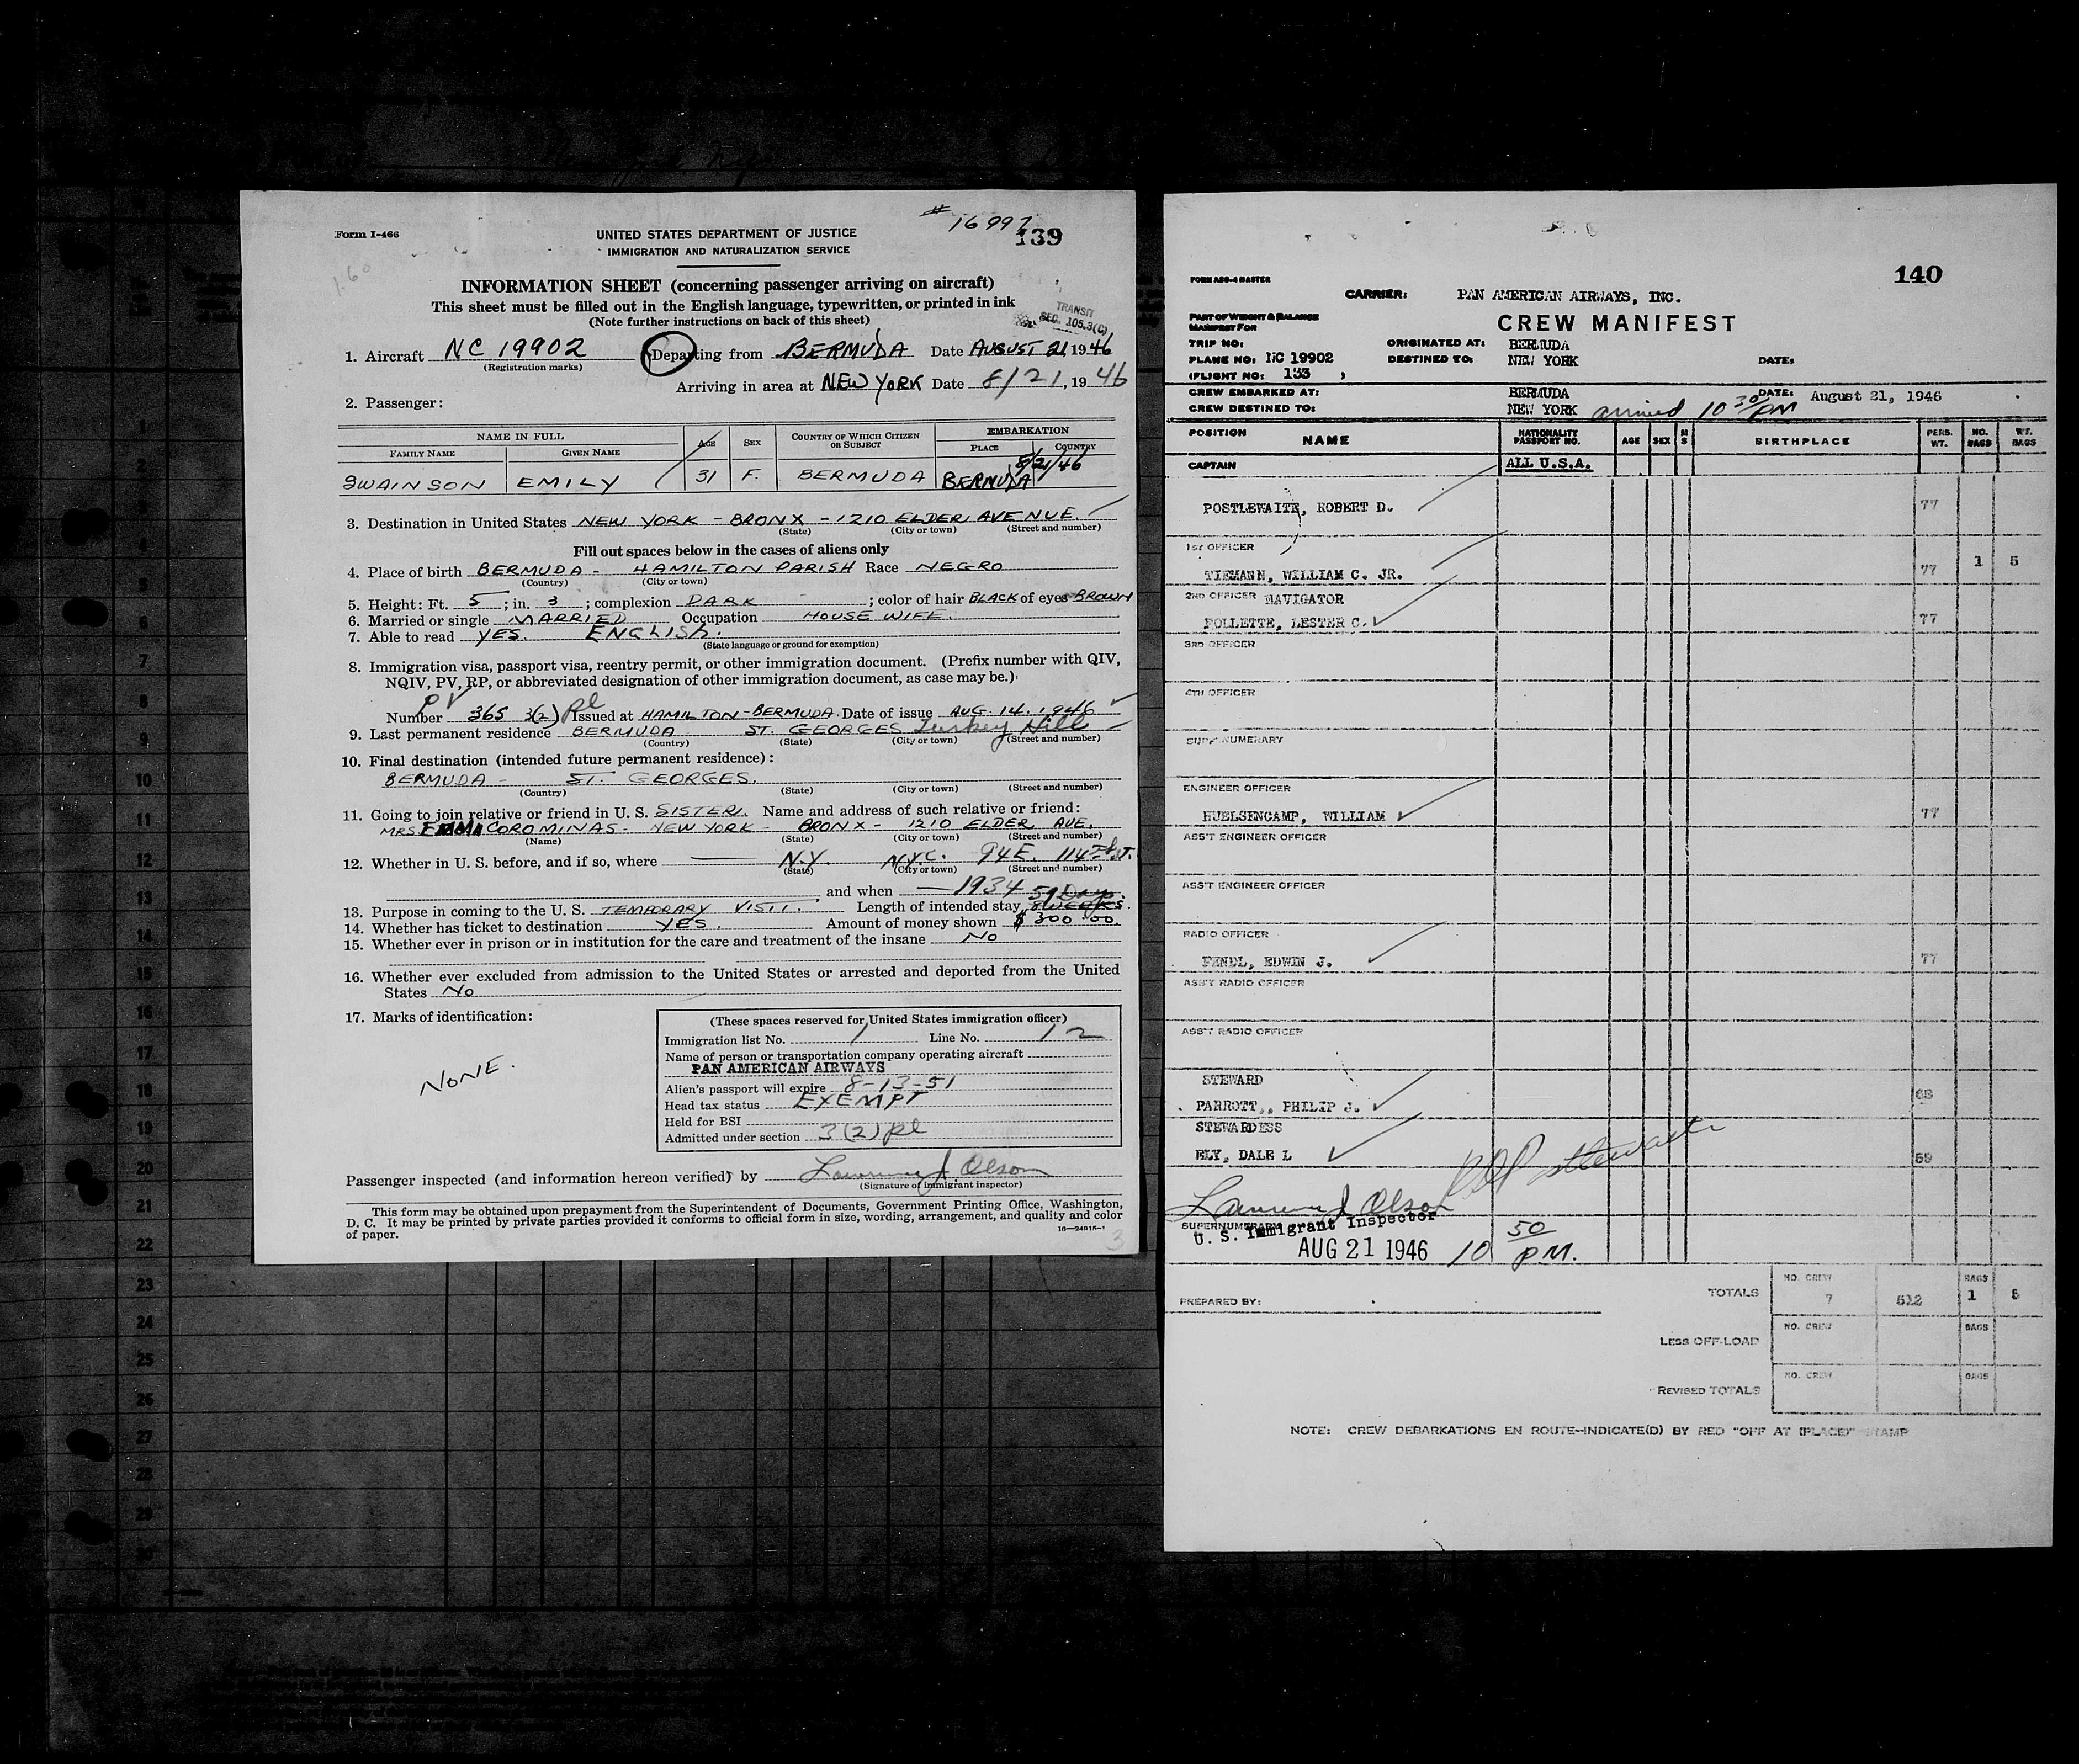 Form I-466
# 16997
139
UNITED STATES DEPARTMENT OF JUSTICE
IMMIGRATION AND NATURALIZATION SERVICE
INFORMATION SHEET (concerning passenger arriving on aircraft)
This sheet must be filled out in the English language, typewritten, or printed in ink
(Note further instructions on back of this sheet)
TRANSIT
SEC. 105.3(C)
1. Aircraft NC 19902 Departing from BERMUDA Date AUGUST 21 1946
(Registration marks)
Arriving in area at NEW YORK Date 8/21, 1946
2. Passenger:
NAME IN FULL AGE SEX COUNTRY OF WHICH CITIZEN OR SUBJECT EMBARKATION
FAMILY NAME GIVEN NAME PLACE COUNTRY
8/21/46
SWAINSON EMILY 31 F. BERMUDA BERMUDA
3. Destination in United States NEW YORK - BRONX - 1210 ELDER AVENUE.
(State) (City or town) (Street and number)
Fill out spaces below in the cases of aliens only
4. Place of birth BERMUDA - HAMILTON PARISH Race NEGRO
(Country) (City or town)
5. Height: Ft. 5; in. 3; complexion DARK; color of hair BLACK of eyes BROWN
6. Married or single MARRIED Occupation HOUSE WIFE.
7. Able to read YES. ENGLISH.
(State language or ground for exemption)
8. Immigration visa, passport visa, reentry permit, or other immigration document. (Prefix number with QIV,
NQIV, PV, RP, or abbreviated designation of other immigration document, as case may be.)
PV
Number 365 3(2) pl Issued at HAMILTON-BERMUDA. Date of issue AUG. 14. 1946
9. Last permanent residence BERMUDA ST. GEORGES Turkey Hill
(Country) (State) (City or town) (Street and number)
10. Final destination (intended future permanent residence):
BERMUDA - ST. GEORGES.
(Country) (State) (City or town) (Street and number)
11. Going to join relative or friend in U. S. SISTER. Name and address of such relative or friend:
MRS. EMMA COROMINAS - NEW YORK - BRONX - 1210 ELDER AVE.
(Name) (State) (City or town) (Street and number)
12. Whether in U. S. before, and if so, where N.Y. N.Y.C. 94 E. 114TH ST.
(State) (City or town) (Street and number)
and when 1934
59 Days
13. Purpose in coming to the U. S. TEMPORARY VISIT. Length of intended stay 8 WEEKS.
14. Whether has ticket to destination YES. Amount of money shown $300.00.
15. Whether ever in prison or in institution for the care and treatment of the insane No
16. Whether ever excluded from admission to the United States or arrested and deported from the United
States No
17. Marks of identification:
NONE.
(These spaces reserved for United States immigration officer)
Immigration list No. 1 Line No. 12
Name of person or transportation company operating aircraft
PAN AMERICAN AIRWAYS
Alien's passport will expire 8-13-51
Head tax status EXEMPT
Held for BSI
Admitted under section 3(2) pl
Passenger inspected (and information hereon verified) by Lawrence J Olson
(Signature of immigrant inspector)
This form may be obtained upon prepayment from the Superintendent of Documents, Government Printing Office, Washington,
D. C. It may be printed by private parties provided it conforms to official form in size, wording, arrangement, and quality and color
of paper.
16—24915-1
3
140
CARRIER: PAN AMERICAN AIRWAYS, INC.
PART OF WEIGHT & BALANCE
MANIFEST FOR
CREW MANIFEST
TRIP NO: ORIGINATED AT: BERMUDA
PLANE NO: NC 19902 DESTINED TO: NEW YORK DATE:
(FLIGHT NO: 133 )
CREW EMBARKED AT: BERMUDA DATE: August 21, 1946
CREW DESTINED TO: NEW YORK arrived 10 30 PM
POSITION NAME NATIONALITY PASSPORT NO. AGE SEX M S BIRTHPLACE PERS. WT. NO. BAGS WT. BAGS
CAPTAIN ALL U.S.A.
POSTLEWAITE, ROBERT D. 77
1ST OFFICER
TIEMANN, WILLIAM C. JR. 77 1 5
2ND OFFICER NAVIGATOR
FOLLETTE, LESTER C. 77
3RD OFFICER
4TH OFFICER
SUPERNUMERARY
ENGINEER OFFICER
HUELSENCAMP, WILLIAM 77
ASS'T ENGINEER OFFICER
ASS'T ENGINEER OFFICER
RADIO OFFICER
FENDL, EDWIN J. 77
ASS'T RADIO OFFICER
ASS'T RADIO OFFICER
STEWARD
PARROTT, PHILIP J. 68
STEWARDESS
ELY, DALE L 59
Lawrence J Olson
SUPERNUMERARY
U. S. Immigrant Inspector
AUG 21 1946 10 50 PM.
PREPARED BY:
TOTALS NO. CREW 7 512 BAGS 1 5
LESS OFF-LOAD NO. CREW BAGS
REVISED TOTALS NO. CREW BAGS
NOTE: CREW DEBARKATIONS EN ROUTE--INDICATE(D) BY RED "OFF AT (PLACE)" STAMP
1
2
4
5
6
7
8
9
10
11
12
13
14
15
16
17
18
19
20
21
22
23
24
25
26
27
28
29
30